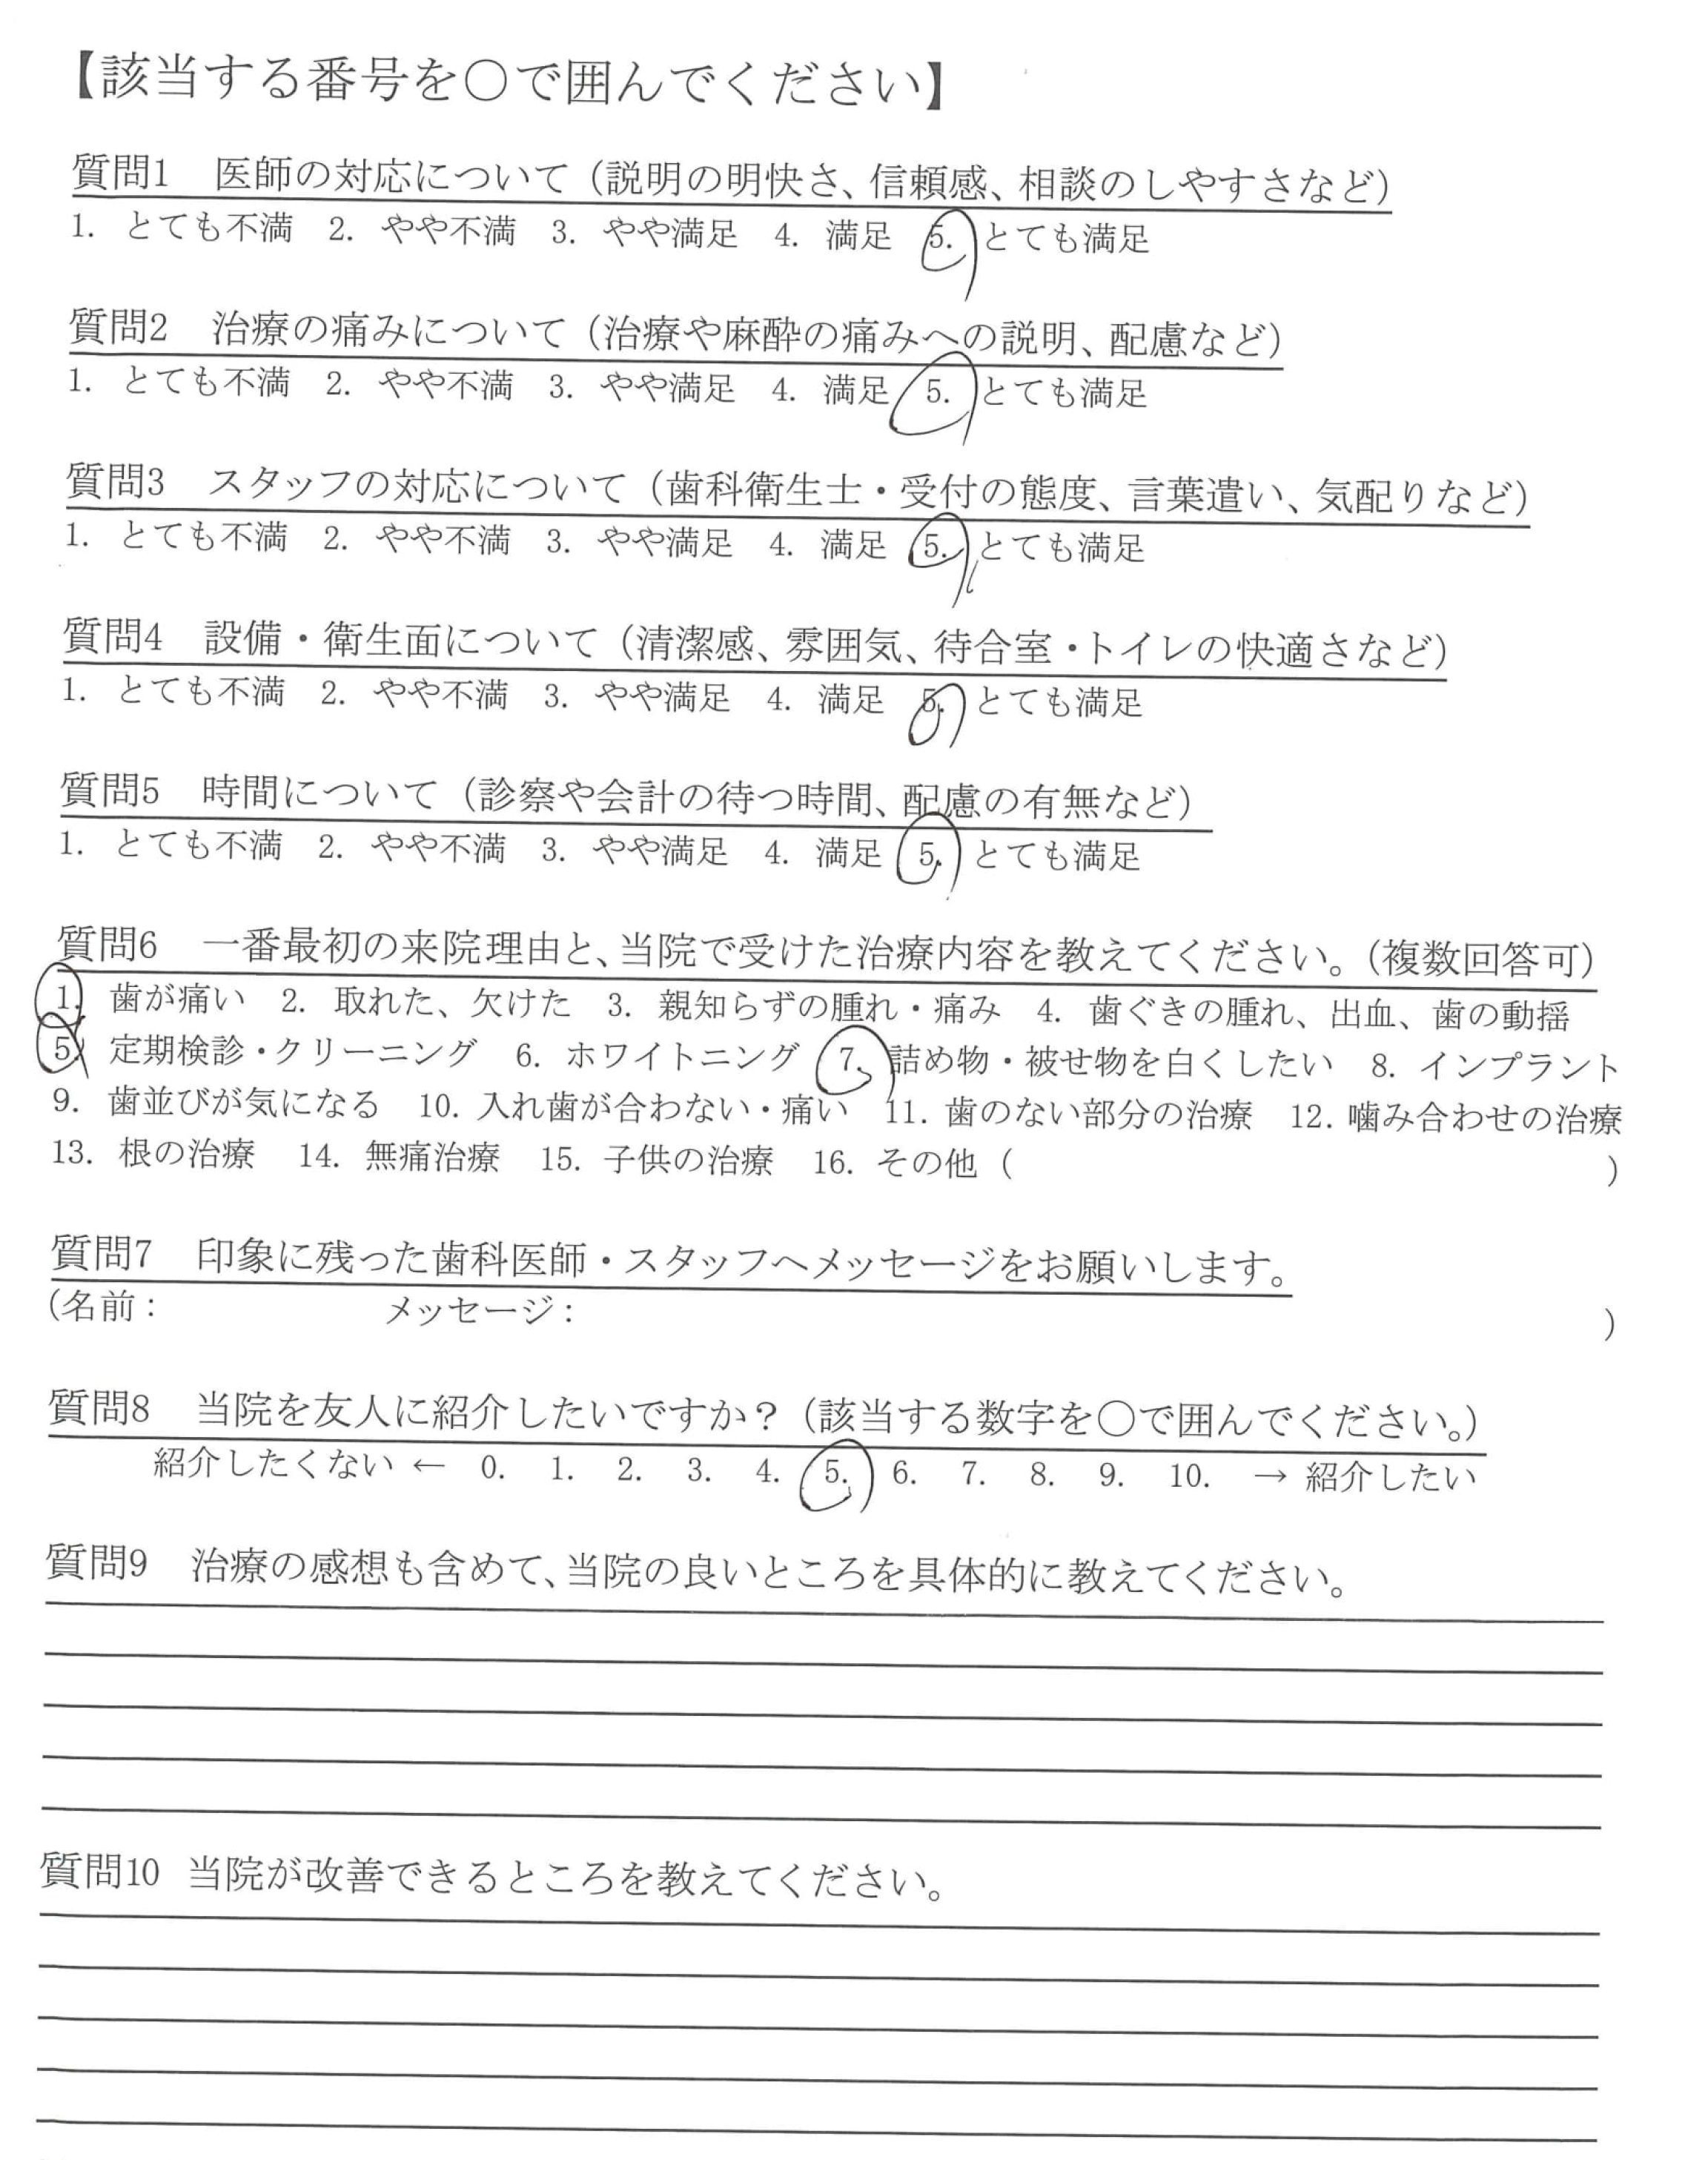 【該当する番号を○で囲んでください】
質問1　医師の対応について（説明の明快さ、信頼感、相談のしやすさなど）
1. とても不満　2. やや不満　3. やや満足　4. 満足　5. とても満足
質問2　治療の痛みについて（治療や麻酔の痛みへの説明、配慮など）
1. とても不満　2. やや不満　3. やや満足　4. 満足　5. とても満足
質問3　スタッフの対応について（歯科衛生士・受付の態度、言葉遣い、気配りなど）
1. とても不満　2. やや不満　3. やや満足　4. 満足　5. とても満足
質問4　設備・衛生面について（清潔感、雰囲気、待合室・トイレの快適さなど）
1. とても不満　2. やや不満　3. やや満足　4. 満足　5. とても満足
質問5　時間について（診察や会計の待つ時間、配慮の有無など）
1. とても不満　2. やや不満　3. やや満足　4. 満足　5. とても満足
質問6　一番最初の来院理由と、当院で受けた治療内容を教えてください。（複数回答可）
1. 歯が痛い　2. 取れた、欠けた　3. 親知らずの腫れ・痛み　4. 歯ぐきの腫れ、出血、歯の動揺
5. 定期検診・クリーニング　6. ホワイトニング　7. 詰め物・被せ物を白くしたい　8. インプラント
9. 歯並びが気になる　10. 入れ歯が合わない・痛い　11. 歯のない部分の治療　12. 噛み合わせの治療
13. 根の治療　14. 無痛治療　15. 子供の治療　16. その他（　　　）
質問7　印象に残った歯科医師・スタッフへメッセージをお願いします。
（名前：　　　メッセージ：　　　）
質問8　当院を友人に紹介したいですか？（該当する数字を○で囲んでください。）
紹介したくない ← 0. 1. 2. 3. 4. 5. 6. 7. 8. 9. 10. → 紹介したい
質問9　治療の感想も含めて、当院の良いところを具体的に教えてください。
質問10　当院が改善できるところを教えてください。